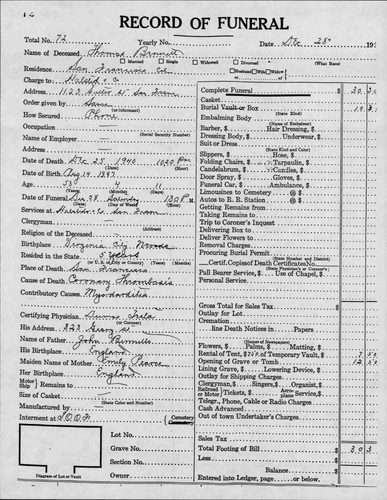 RECORD OF FUNERAL
Total No. 72 Yearly No. Date Dec 28 19
Name of Deceased Thomas
Married Single Widowed Divorced (What Race)
Residence San Francisco Cal Husband Wife Widow of
Charge to Halsted & Co
Address 1123 Sutter St San Fran
Order given by Same (or informant)
How Secured Phone
Occupation (Social Security Number)
Name of Employer
Address
Date of Death Dec 25 1940 1020 Pm
Date of Birth Aug 14 1887
Age 53 4 11
(Years) (Months) (Days)
Date of Funeral Dec 28 Saturday 130 P M.
(Date) (Day of Week) (Hour)
Services at Halsted Co San Fran
Clergyman
Religion of the Deceased
Birthplace Virginia City Nevada
Resided in the State 5 years
(or U. S. or City or County) (Years or Months)
Place of Death San Francisco
Cause of Death Coronary Thrombosis
Contributory Causes
Certifying Physician
(or Coroner)
His Address 323 Geary St
Name of Father John
His Birthplace England
Maiden Name of Mother Emily Pearce
Her Birthplace England
Motor Ship Remains to
Size of Casket
(State Color and Number)
Manufactured by
Interment at I.O.O.F. Cemetery Crematory
Lot No.
Grave No.
Section No.
Owner
Diagram of Lot or Vault
Complete Funeral $ 30 30
Casket
Burial Vault or Box 10 3
(State Kind)
Embalming Body
(Name of Embalmer)
Barber, $ Hair Dressing, $
Dressing Body, $ Underwear, $
Suit or Dress
(State Kind and Color)
Slippers, $ Hose, $
Folding Chairs, $ Tarpaulin, $
Candelabrum, $ Candles, $
Door Spray, $ Gloves, $
Funeral Car, $ Ambulance, $
Limousines to Cemetery @ $
Autos to R. R. Station @ $
Getting Remains from
Taking Remains to
Trip to Coroner's Inquest
Delivering Box to
Deliver Flowers to
Removal Charges
Procuring Burial Permit
(State Number and District)
Certif. Copies of Death Certificates No.
(State Physician's or Coroner's)
Pall Bearer Service, $ Use of Chapel, $
Personal Service
Gross Total for Sales Tax $
Outlay for Lot
Cremation
line Death Notices in Papers
Flowers, $ Palms, $ Matting, $
Rental of Tent, $ of Temporary Vault, $ 7 50
Opening of Grave or Tomb 12 50
Lining Grave, $ Lowering Device, $
Outlay for Shipping Charges
Clergyman, $ Singers, $ Organist, $
Railroad or Motor Tickets, $ Aeroplane Service, $
Telegr., Phone, Cable or Radio Charges
Cash Advanced
Out of town Undertaker's Charges
Sales Tax
Total Footing of Bill $ 30 3
Less
Balance $
Entered into Ledger, page or below.